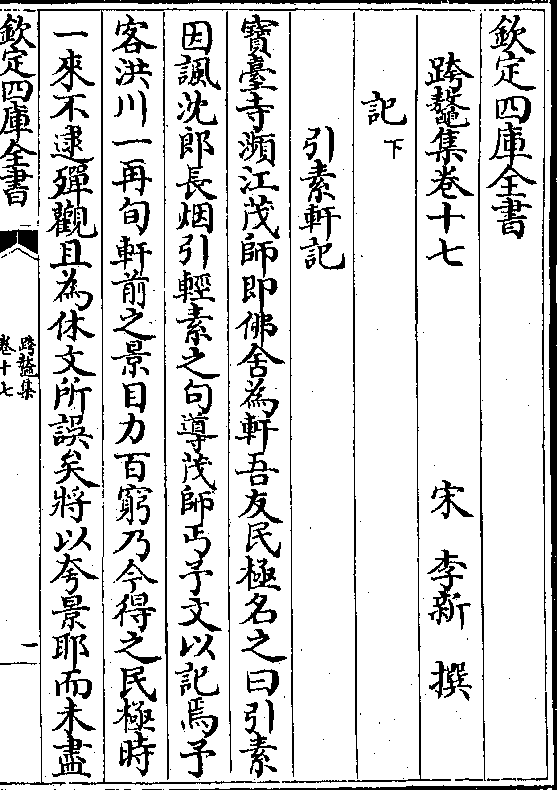 欽定四庫全書
跨鼇集卷十七
宋 李新 撰
記下
引素軒記
寶臺寺瀕江茂師即佛舍為軒吾友民極名之曰引素
因諷沈郎長烟引輕素之句導茂師丐予文以記焉予
客洪川一再旬軒前之景目力百窮乃今得之民極時
一來不逮殫觀且為休文所誤矣將以夸景耶而未盡
欽定四庫全書
跨鼇集
卷十七
一